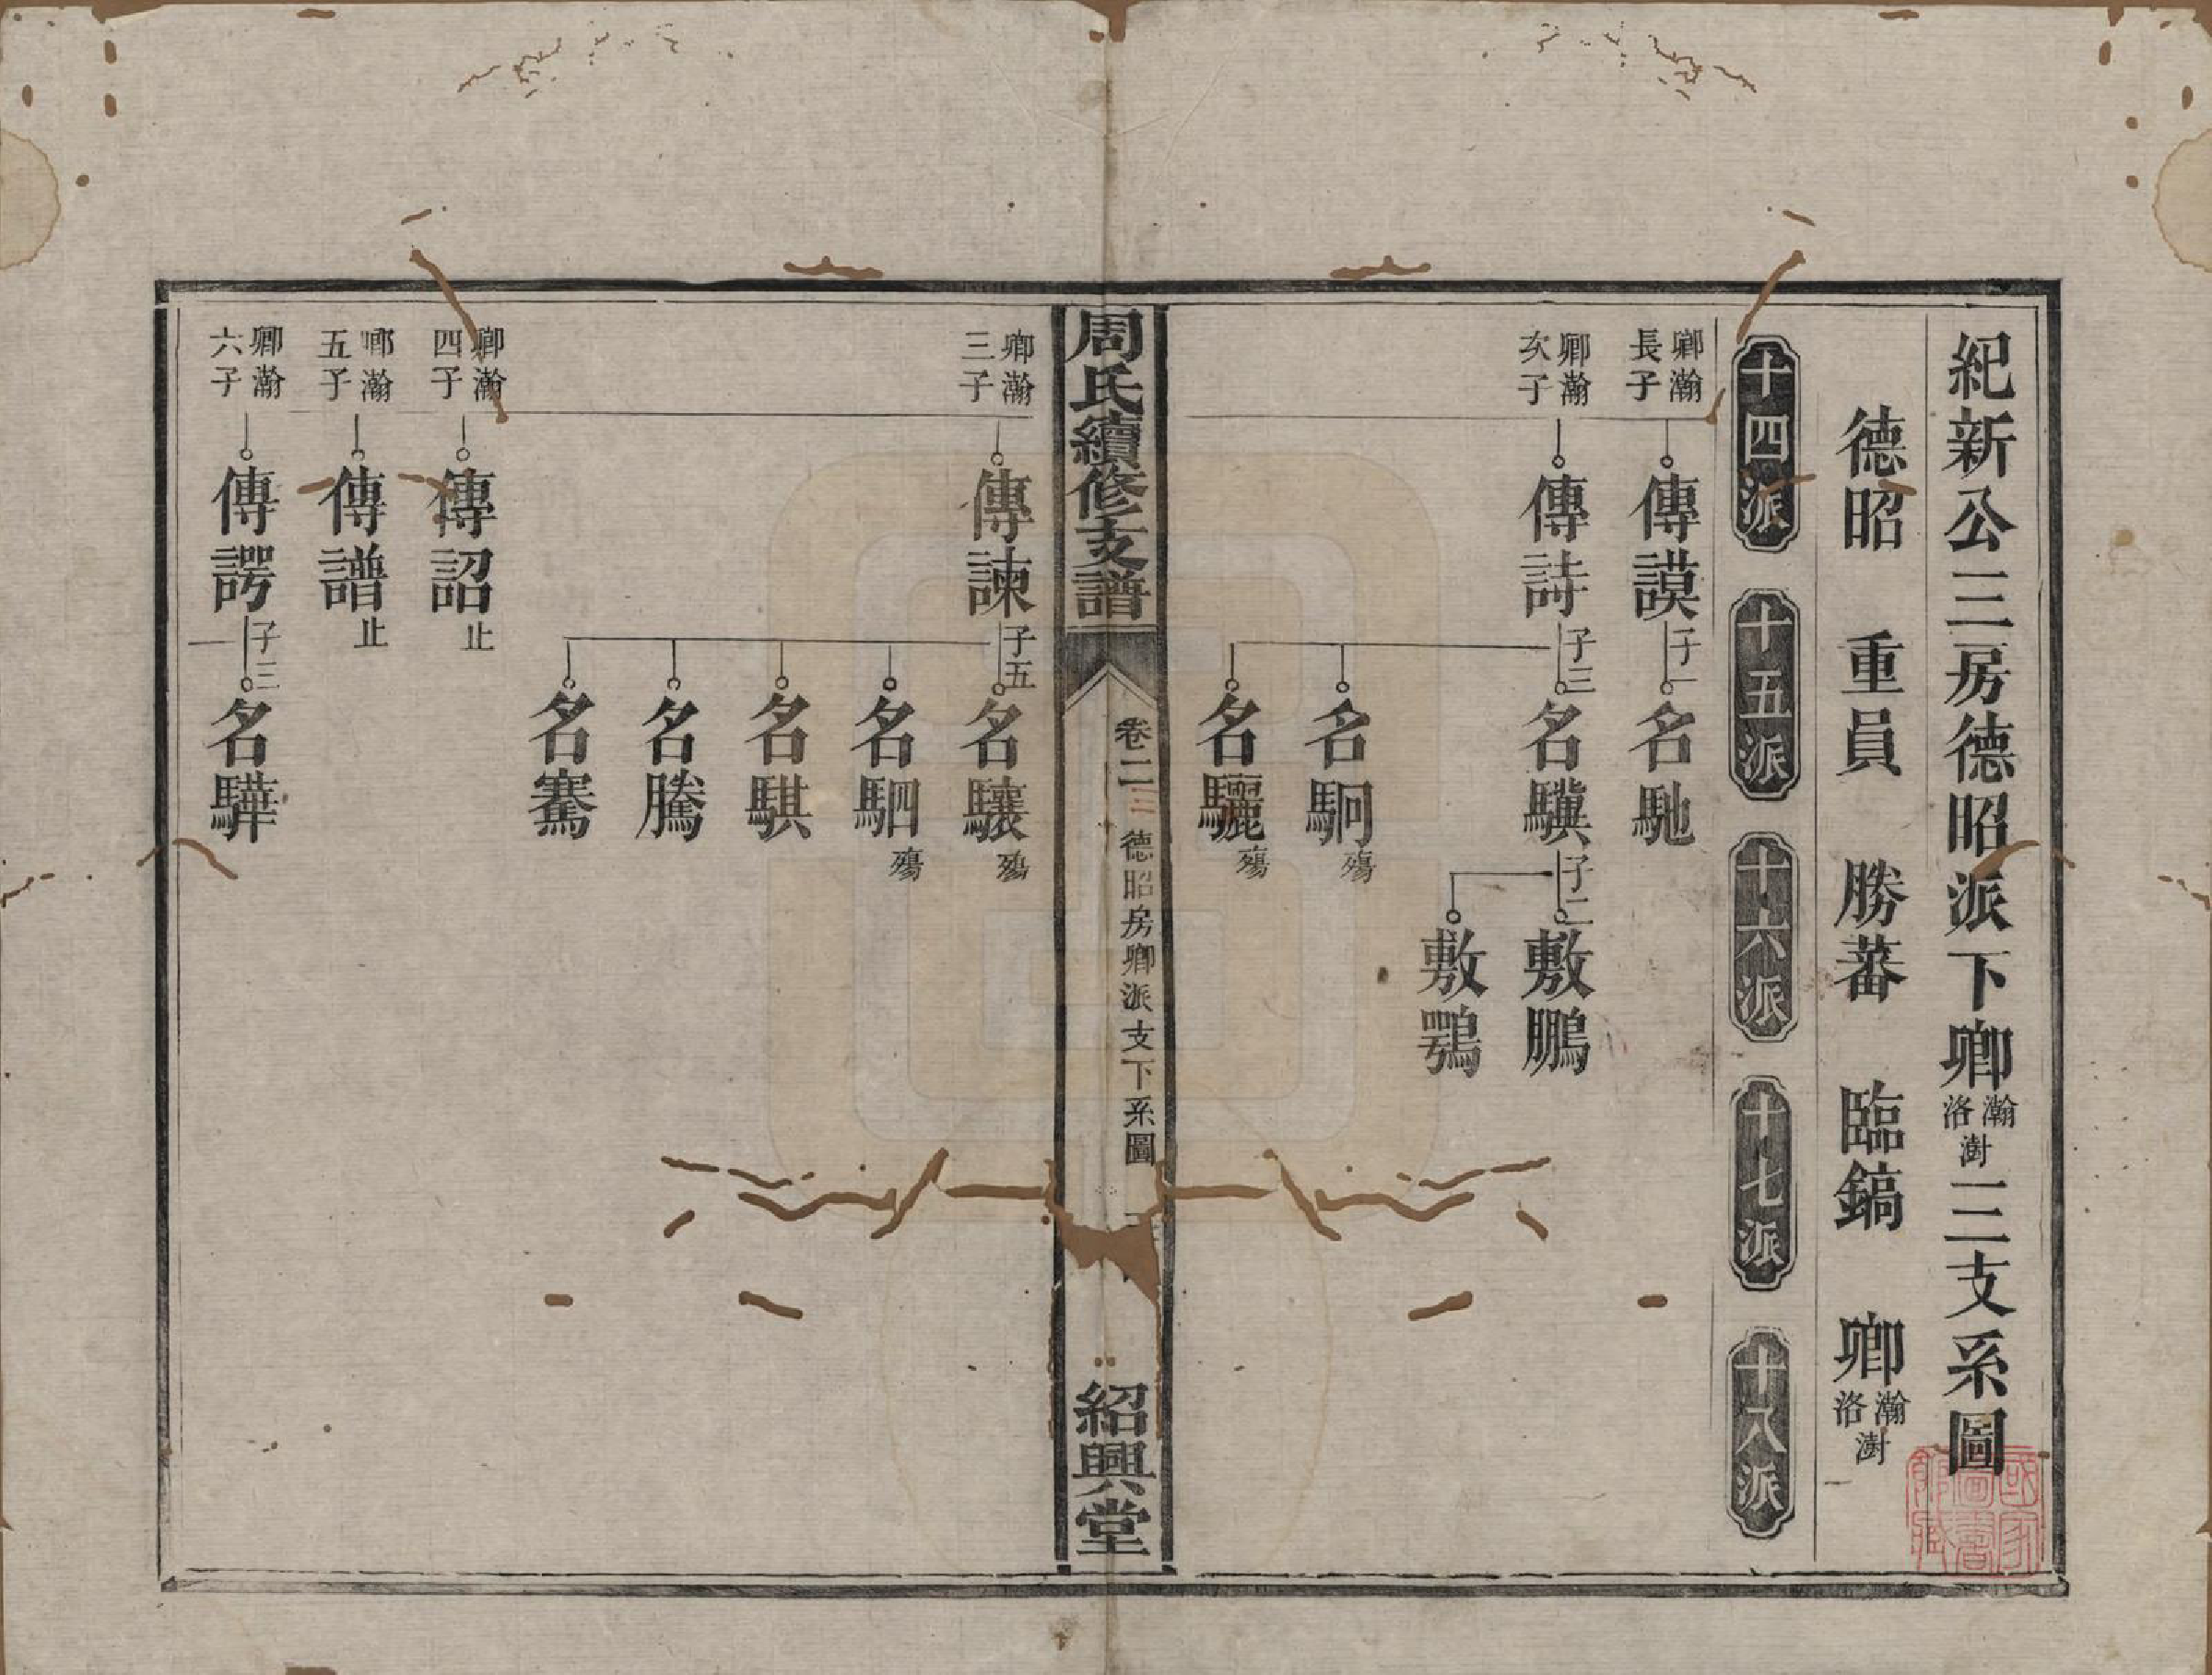 紀新公三房德昭派下卿瀚洛澍三支系圖
德昭 重員 勝蕃 臨鎬 卿瀚洛澍
十四派 十五派 十六派 十七派 十八派
卿瀚長子 傳謨 子一 名馳
卿瀚次子 傳詩 子三 名驥 子二 敷鵬
敷鶚
名駉 殤
名驪 殤
周氏續修支譜 卷二 三 德昭房卿派支下系圖 紹興堂
卿瀚三子 傳諫 子五 名驤 殤
名駟 殤
名騏
名騰
名騫
卿瀚四子 傳詔 止
卿瀚五子 傳譜 止
卿瀚六子 傳諤 子三 名驊
國家圖書館藏